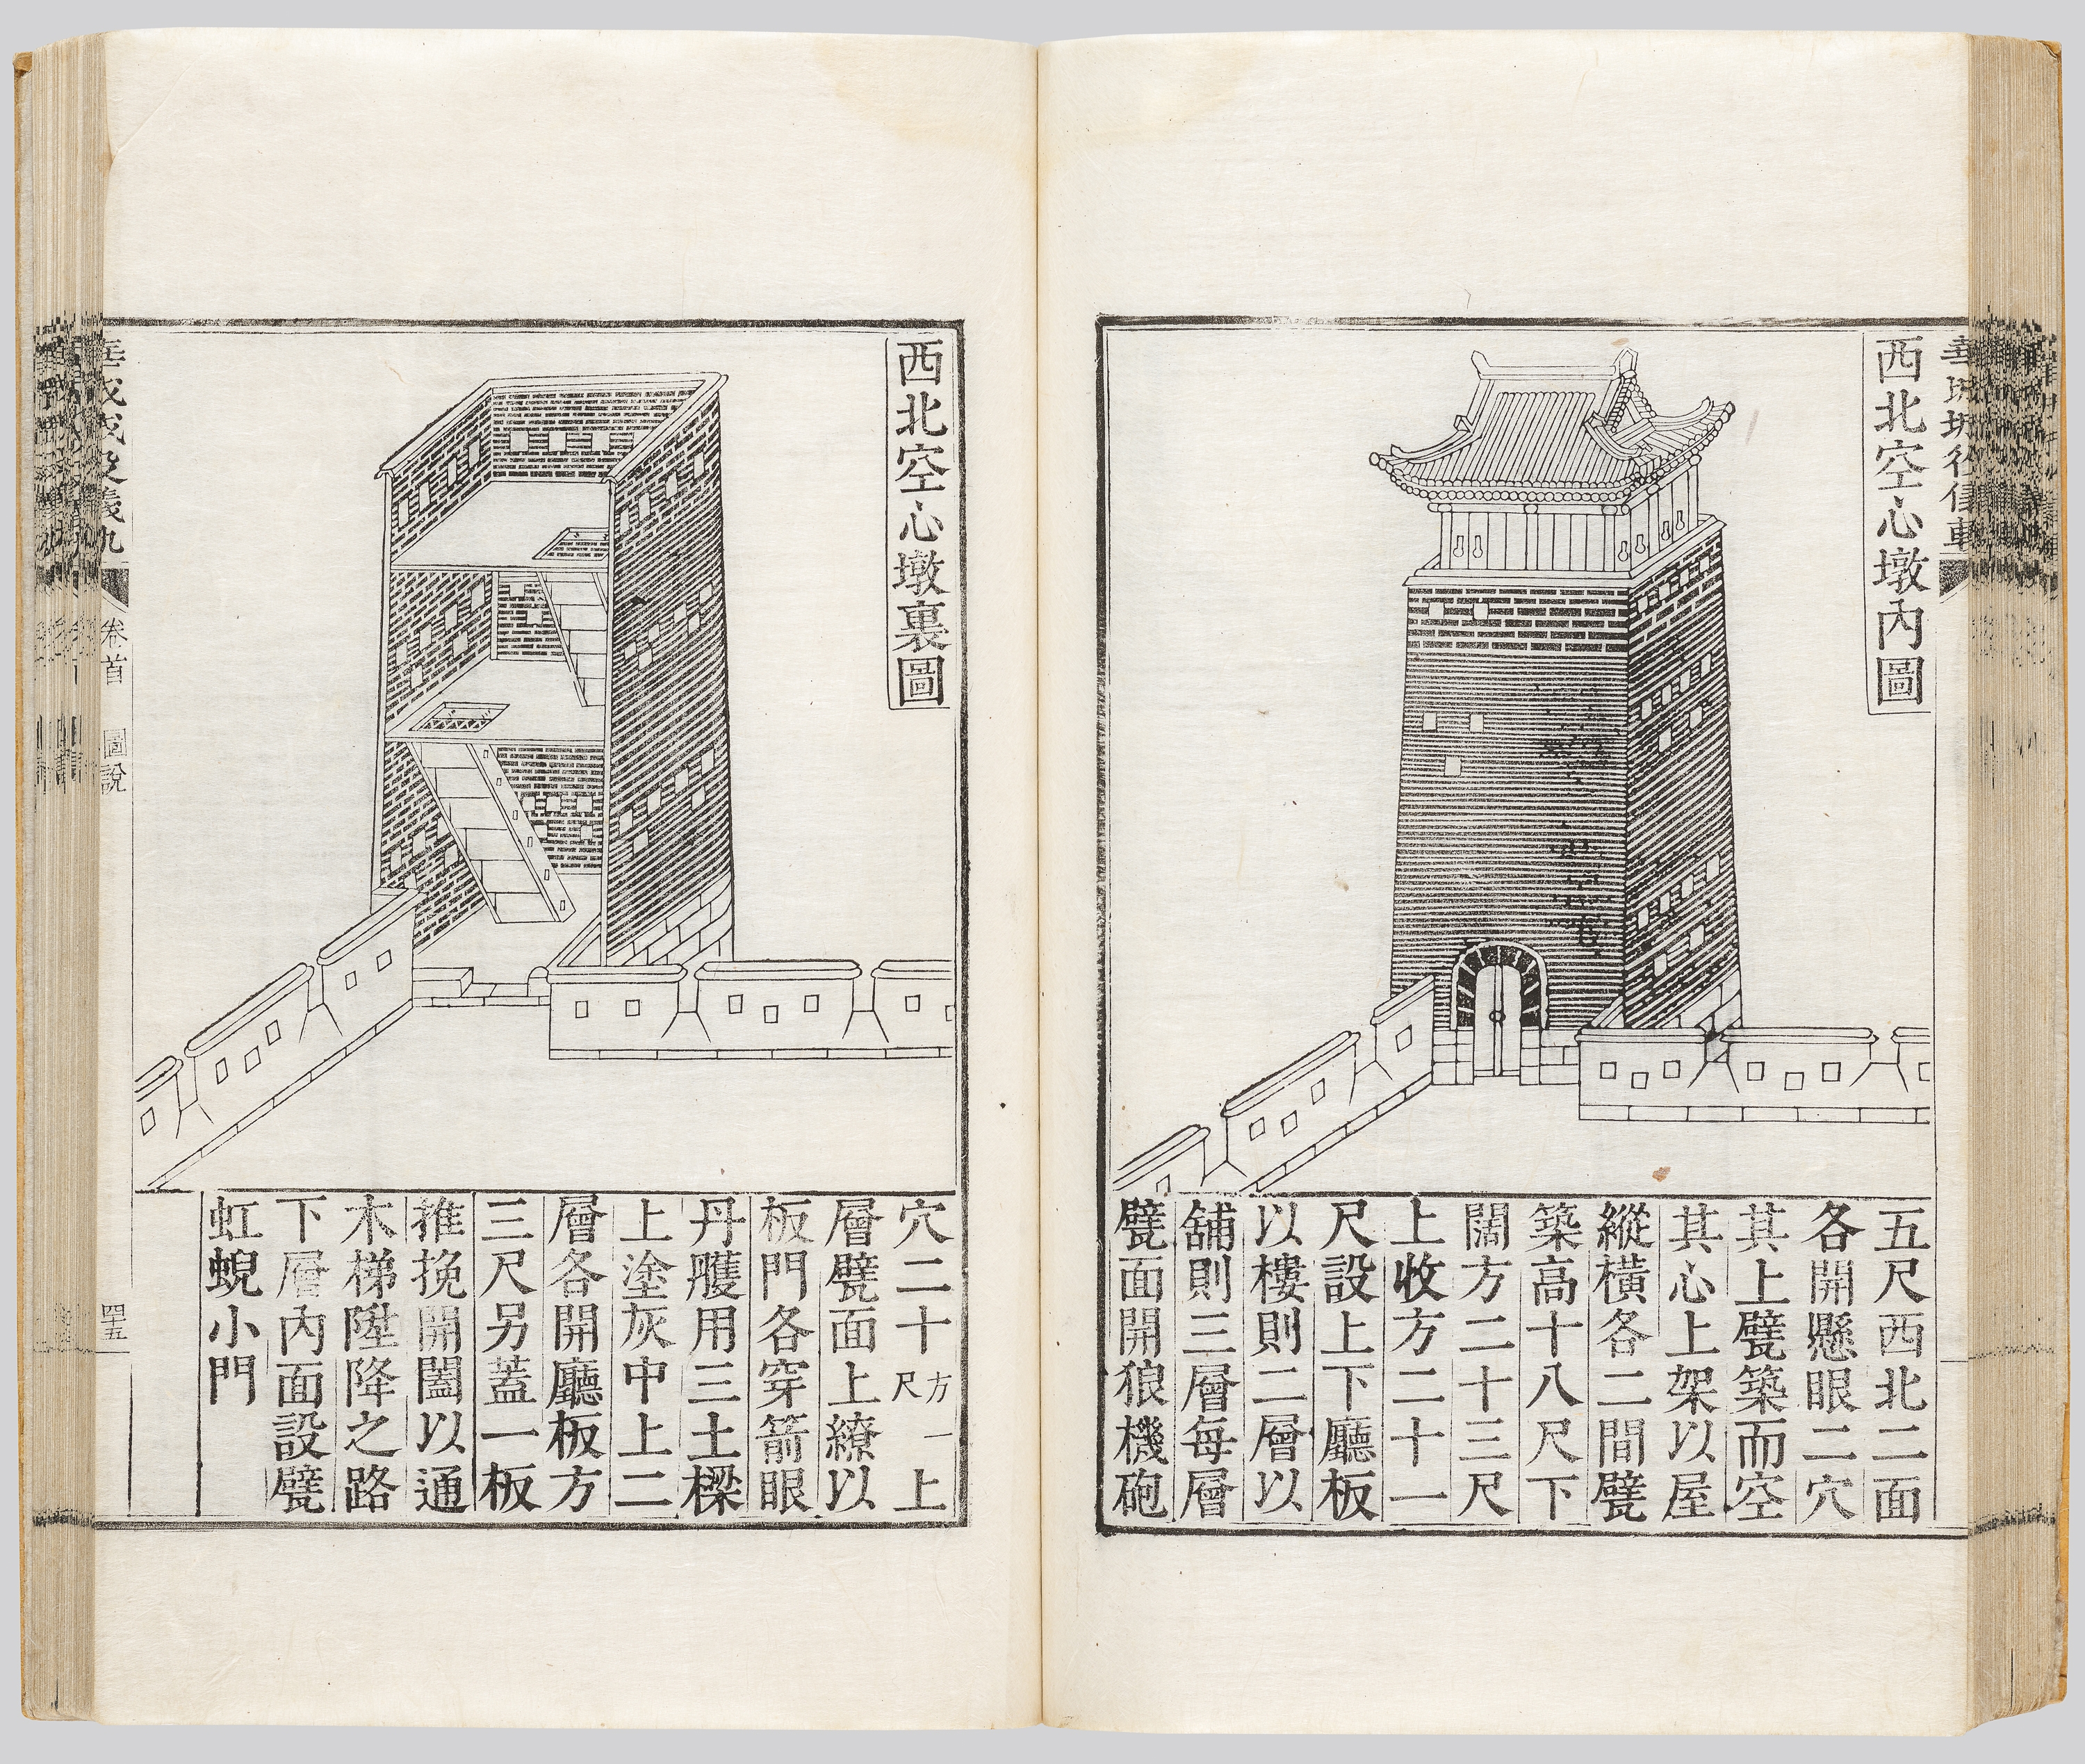 西北空心墩內圖
五尺西北二面
各開懸眼二穴
其上甓築而空
其心上架以屋
縱橫各二間甓
築高十八尺下
闊方二十三尺
上收方二十一
尺設上下廳板
以樓則二層以
舖則三層每層
甓面開狼機砲
西北空心墩裏圖
穴二十方一尺上
層甓面上繚以
板門各穿箭眼
丹雘用三土樑
上塗灰中上二
層各開廳板方
三尺另蓋一板
推挽開闔以通
木梯陞降之路
下層內面設甓
虹蜺小門
卷首 圖說
四十五